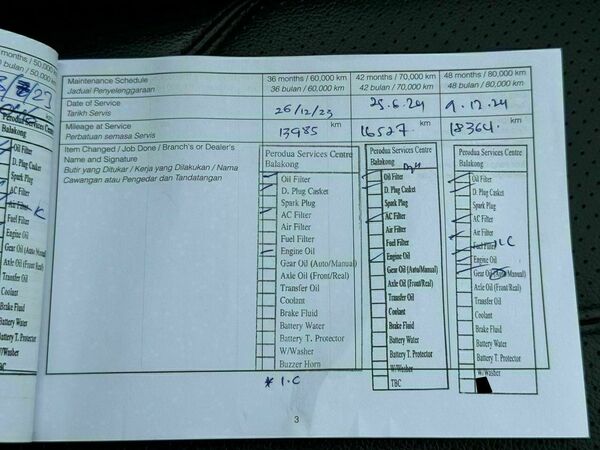 months / 50,000 km
bulan / 50,000 km
/23
Perodua Services
Balakong
Oil Filter
D. Plug Casket
Spark Plug
AC Filter
Air Filter
Fuel Filter
Engine Oil
Gear Oil (Auto/Ma
Axle Oil (Front/R
Transfer Oil
Coolant
Brake Fluid
Battery Water
Battery T. Protec
W/Washer
TBC
Maintenance Schedule
Jadual Penyelenggaraan
36 months / 60,000 km
36 bulan / 60,000 km
42 months / 70,000 km
42 bulan / 70,000 km
48 months / 80,000 km
48 bulan / 80,000 km
Date of Service
Tarikh Servis
26/12/23
25.6.24
9.12.24
Mileage at Service
Perbatuan semasa Servis
13985 km
16527 km
18364 km
Item Changed / Job Done / Branch's or Dealer's
Name and Signature
Butir yang Ditukar / Kerja yang Dilakukan / Nama
Cawangan atau Pengedar dan Tandatangan
Perodua Services Centre
Balakong
Oil Filter
D. Plug Casket
Spark Plug
AC Filter
Air Filter
Fuel Filter
Engine Oil
Gear Oil (Auto/Manual)
Axle Oil (Front/Real)
Transfer Oil
Coolant
Brake Fluid
Battery Water
Battery T. Protector
W/Washer
Buzzer Horn
* I.C
Perodua Services Centre
Balakong
Oil Filter
D. Plug Casket
Spark Plug
AC Filter
Air Filter
Fuel Filter
Engine Oil
Gear Oil (Auto/Manual)
Axle Oil (Front/Real)
Transfer Oil
Coolant
Brake Fluid
Battery Water
Battery T. Protector
W/Washer
TBC
Perodua Services Centre
Balakong
Oil Filter
D. Plug Casket
Spark Plug
AC Filter
Air Filter
Fuel Filter
Engine Oil
Gear Oil (Auto/Manual)
Axle Oil (Front/Real)
Transfer Oil
Coolant
Brake Fluid
Battery Water
Battery T. Protector
W/Washer
3